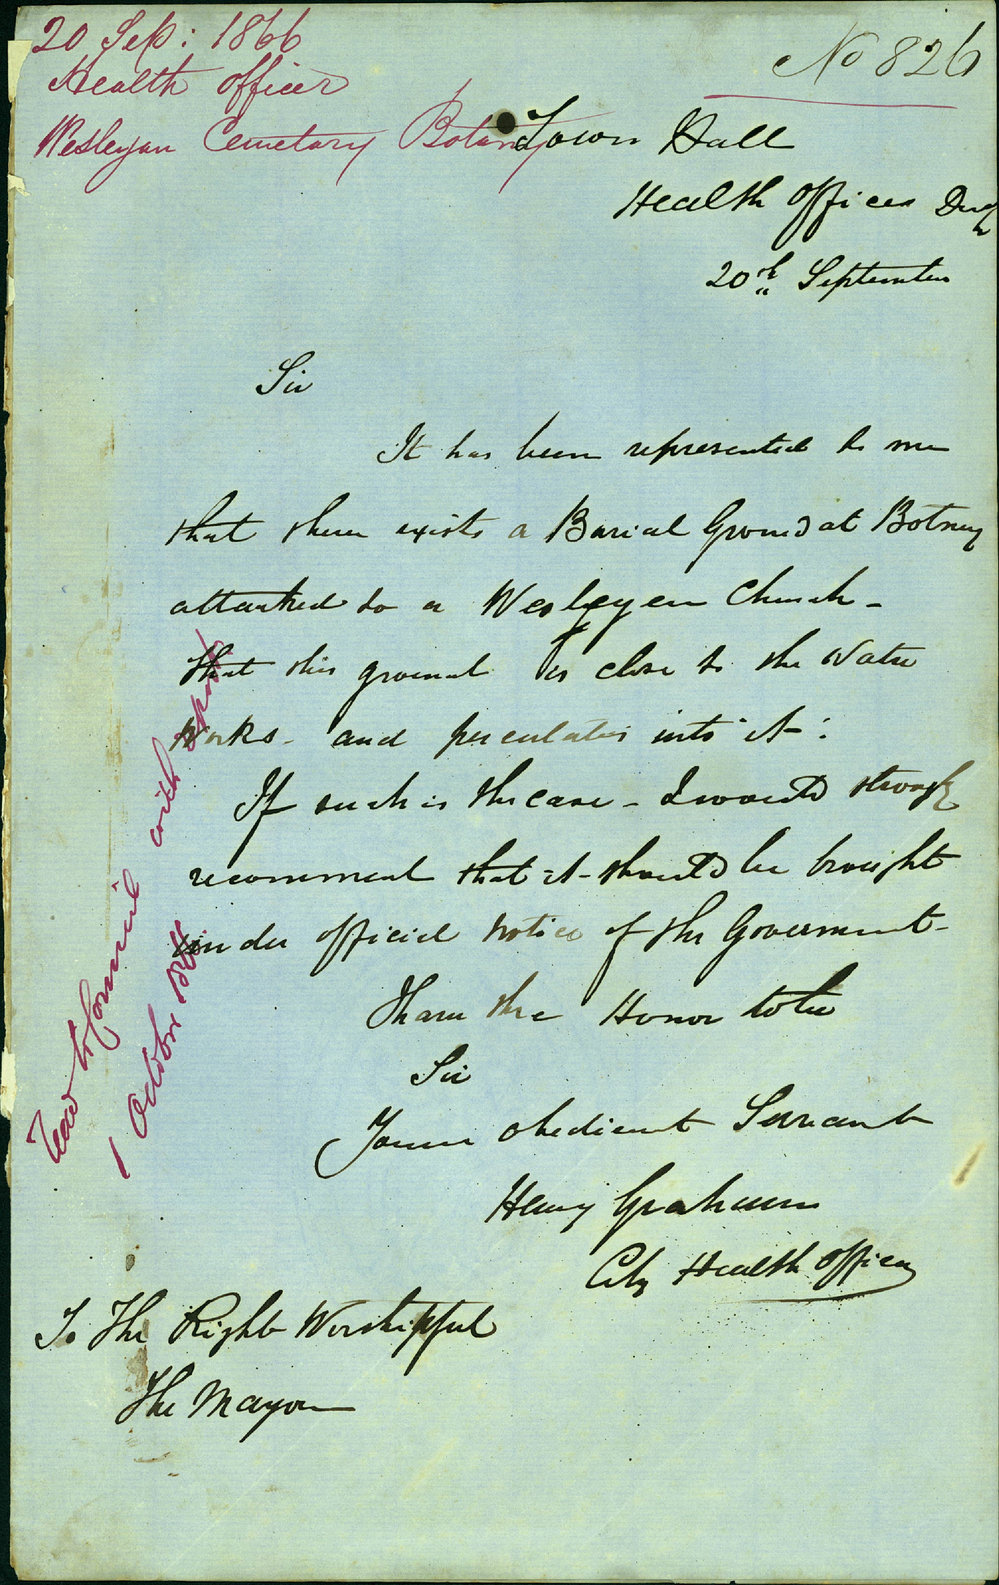 20 Sep: 1866
Health Officer
Wesleyan Cemetary Botany
No 826
Town Hall
Health Offices
20th September
Sir
It has been represented to me
that there exists a Burial Ground at Botney
attached to a Wesleyen Church -
that this ground is close to the Water
Works - and perculates into it :
If such is the case - I would strongly
recommend that it should be brought
under official notice of the Government -
I have the Honor to be
Sir
Your obedient Servant
Henry Graham
City Health Officer
To The Right Worshipful
The Mayor
with
1 October 1866